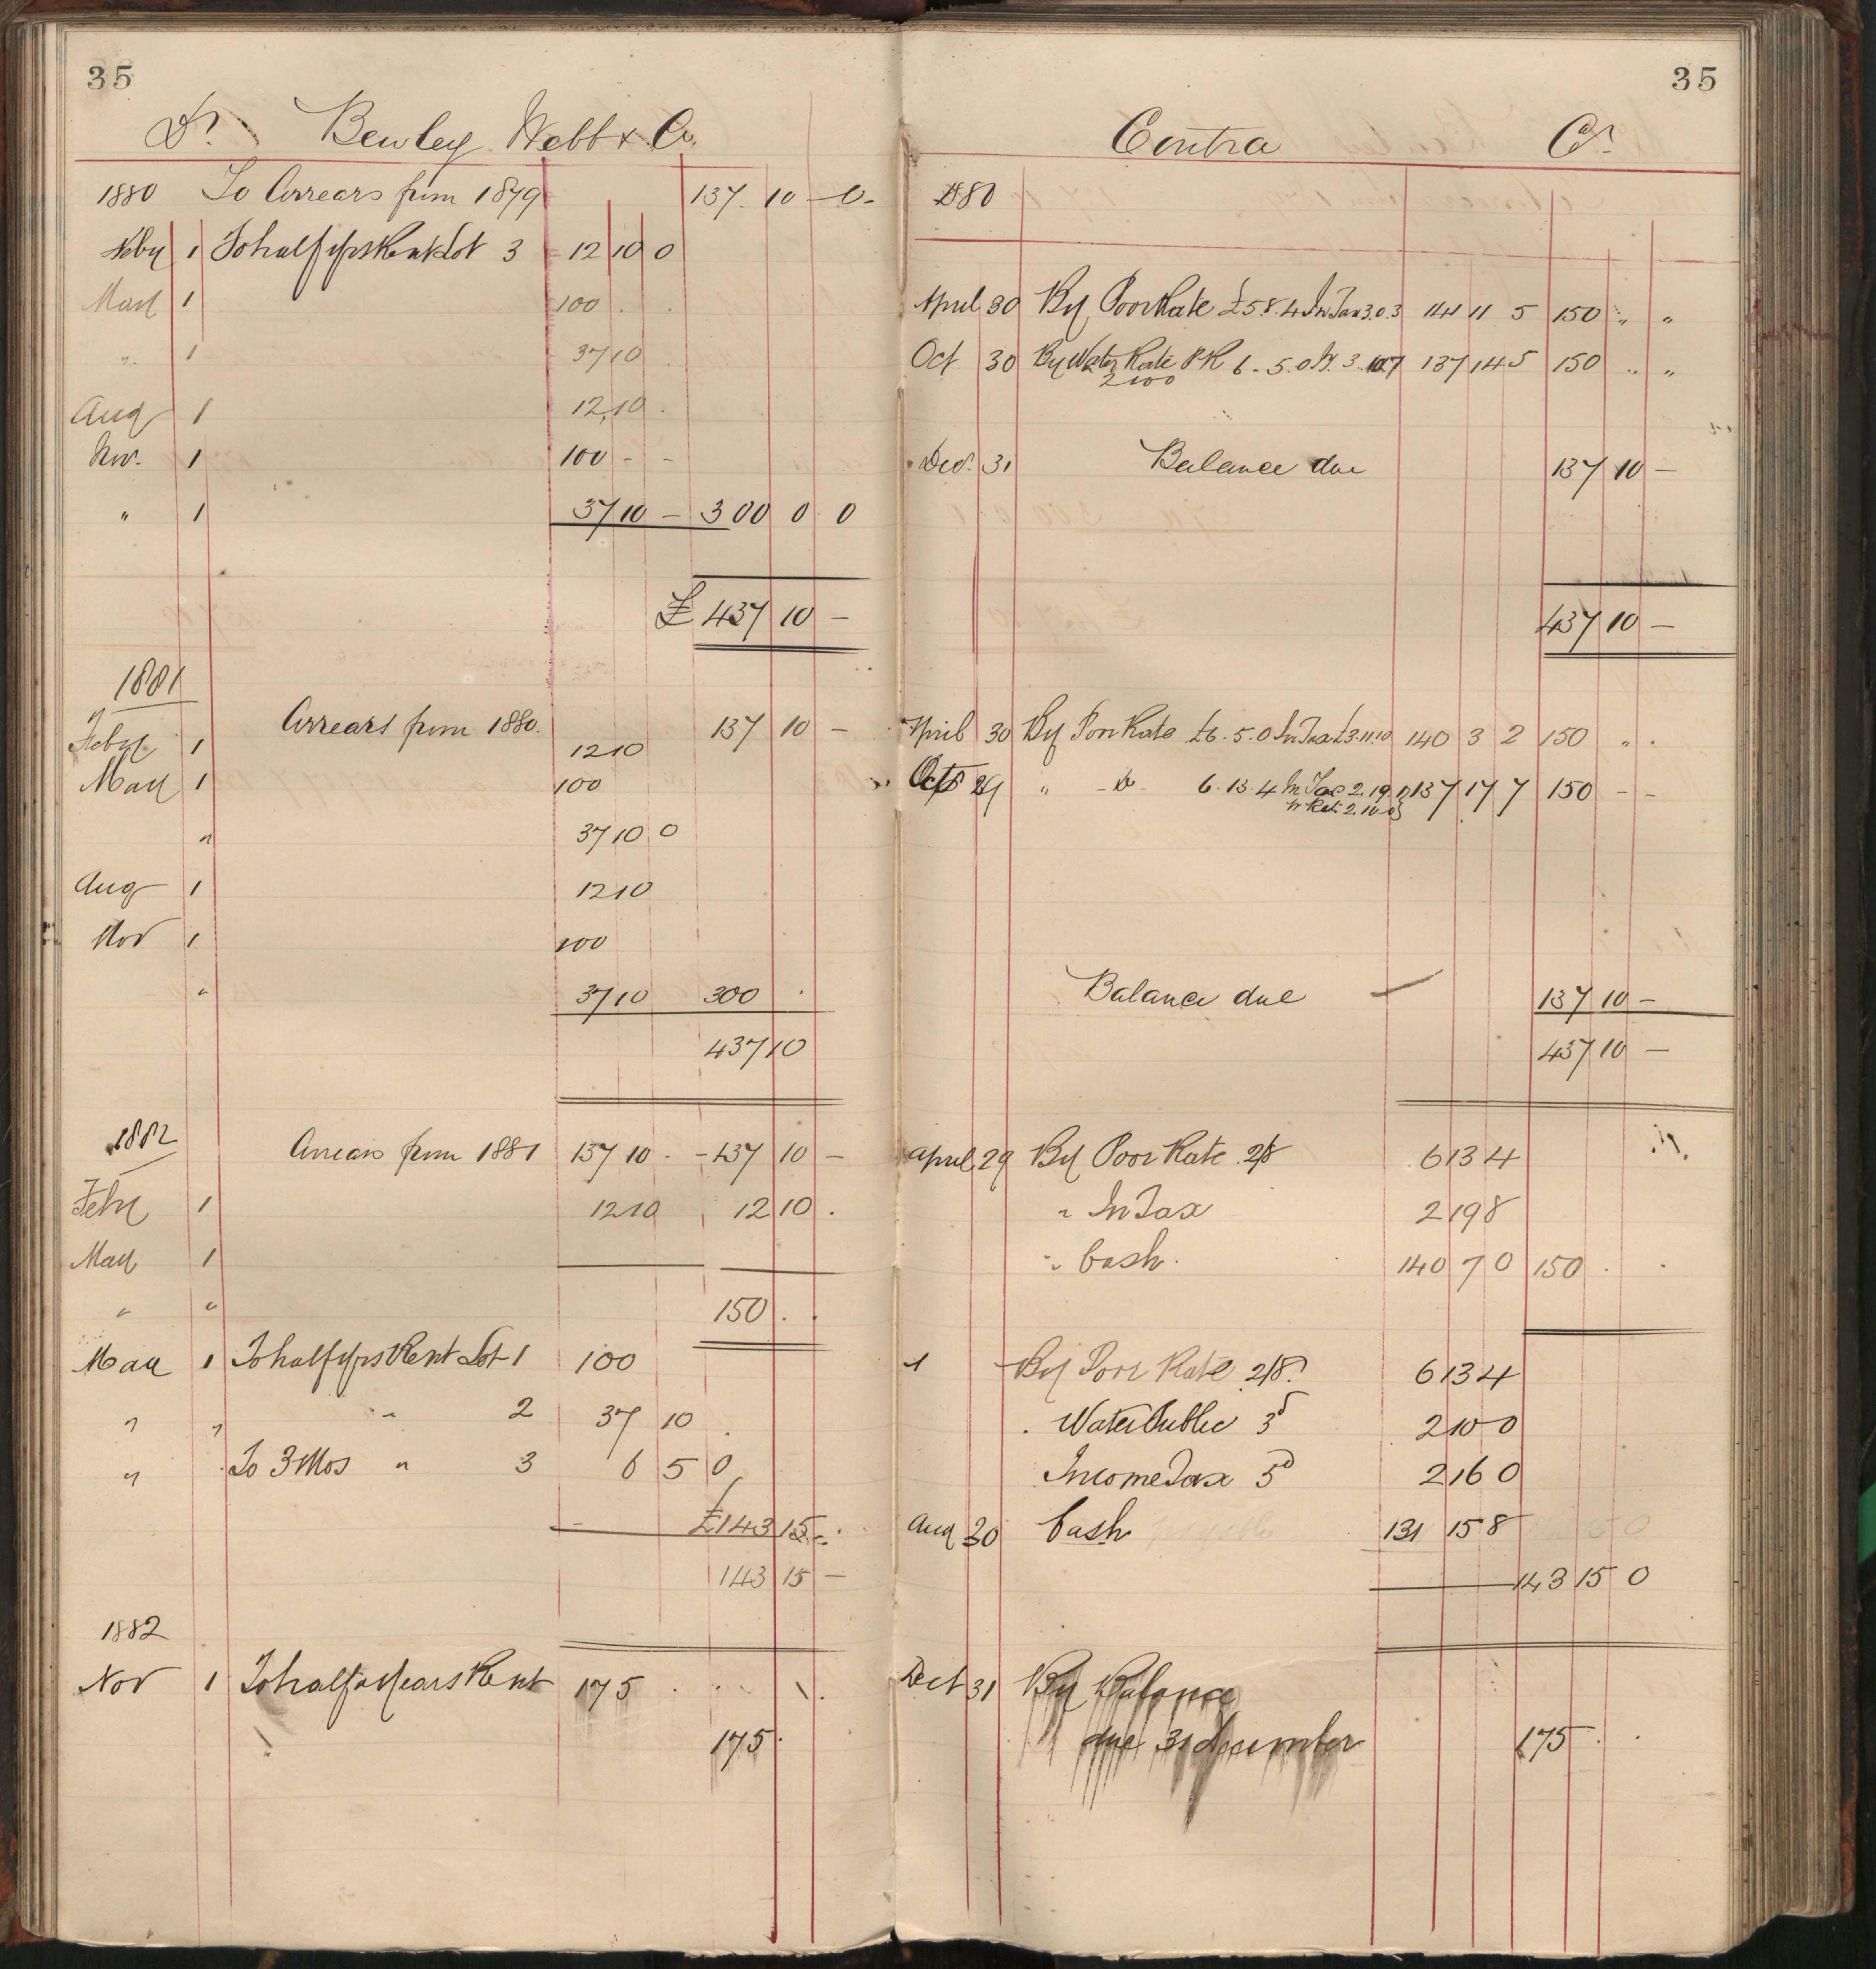 35
Dr. Bewley Webb & Co.
1880 To Arrears from 1879 137 10 0
Feby 1 To half yrs Rent Lot 3 12 10 0
May 1 100 . .
" 1 37 10 .
Aug 1 12 10 .
Nov. 1 100 - -
" 1 37 10 - 300 0 0
£ 437 10 -
1881
Arrears from 1880. 137 10 -
Feby 1 12 10
May 1 100
" 37 10 0
Aug 1 12 10
Nov 1 100
" 37 10 300 .
437 10
1882 Arrears from 1881 137 10 . - 137 10 -
Feby 1 12 10 12 10 .
May 1
" "
150 . .
May 1 To half yrs Rent Lot 1 100
" " " 2 37 10 .
" To 3 Mos " 3 6 5 0
£143 15 -
143 15 -
1882
Nov 1 To half a years Rent 175 . . .
175 .
35
Contra Cr.
1880
April 30 By Poor Rate £5.8.4 In Tax 3.0.3 141 11 5 150 " "
Oct 30 By Water Rate P.R 6.5.0 3.10.7 137 14 5 150 " "
2 10 0
Dec. 31 Balance due 137 10 -
437 10 -
April 30 By Poor Rate £6.5.0 In Tax £3.11.10 140 3 2 150 " .
Oct 29 " Do 6.13.4 In Tax 2.19.1 137 17 7 150 - -
W Rate 2.10.0
Balance due 137 10 -
437 10 -
April 29 By Poor Rate 2/8 6 13 4
" In Tax 2 19 8
" Cash. 140 7 0 150 . .
1 By Poor Rate 2/8 6 13 4
Water Public 3d 2 10 0
Income Tax 5d 2 16 0
Aug 30 Cash 131 15 8
143 15 0
Dec 31 By Balance
due 31 december 175 . .